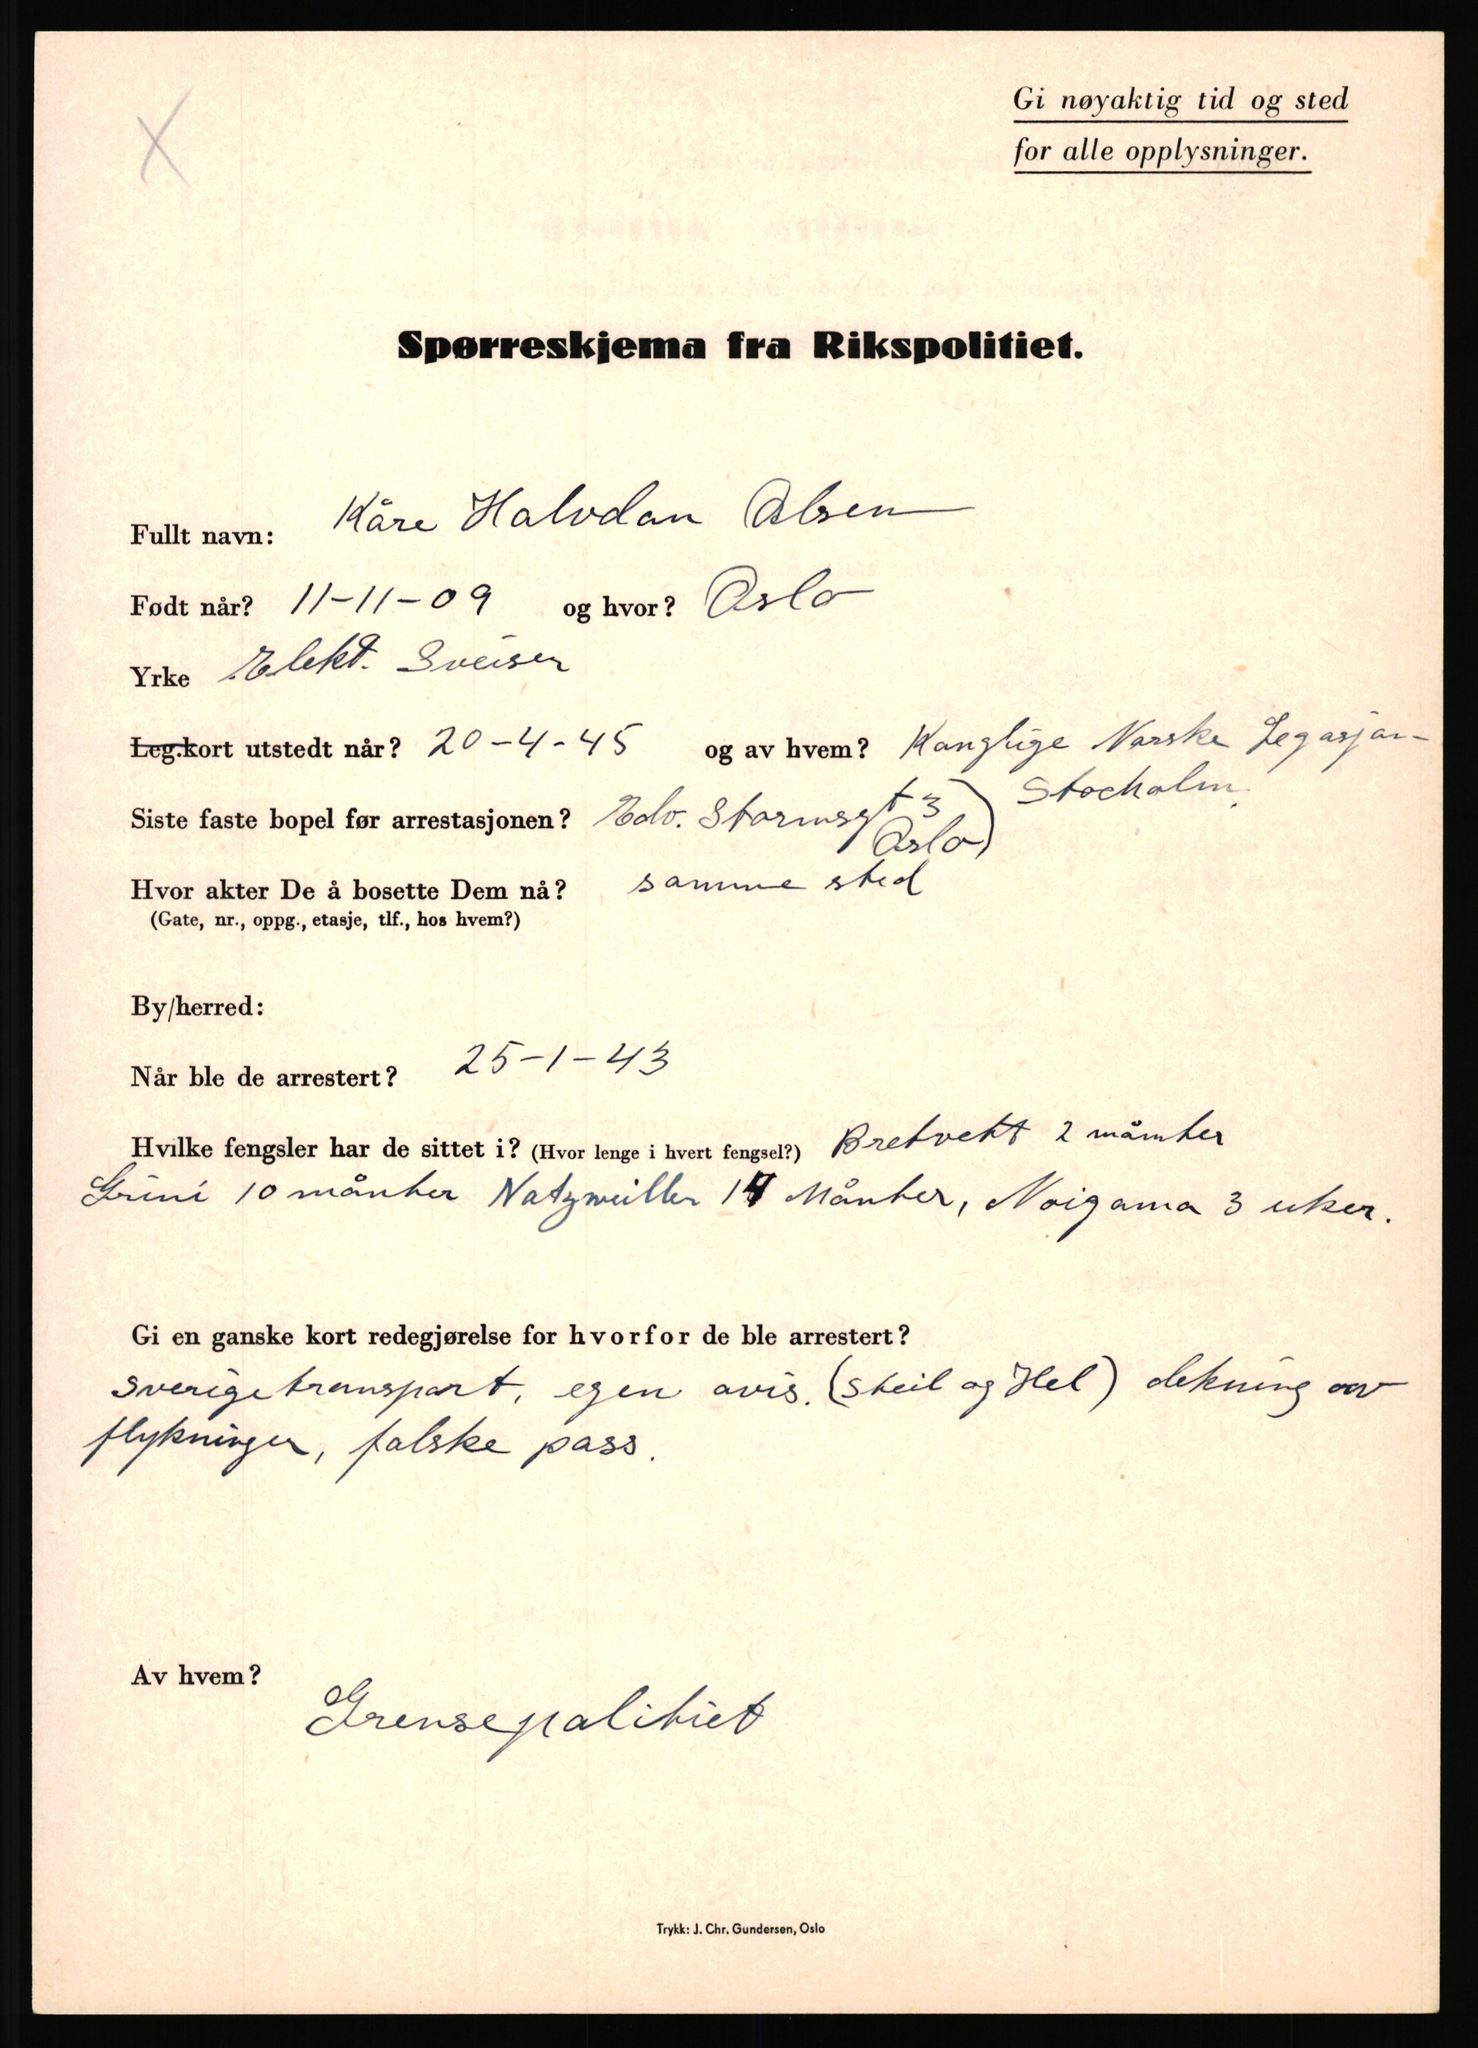 Gi nøyaktig tid og sted
for alle opplysninger.
Spørreskjema fra Rikspolitiet.
Fullt navn: Kåre Halvdan Olsen
Født når? 11-11-09 og hvor? Oslo
Yrke Elekt. Sveiser
Leg.kort utstedt når? 20-4-45 og av hvem? Konglige Norske Legasjon-
Stocholm.
Siste faste bopel før arrestasjonen? Edv. Stormsgt 3
Oslo)
Hvor akter De å bosette Dem nå? samme sted
(Gate, nr., oppg., etasje, tlf., hos hvem?)
By/herred:
Når ble de arrestert? 25-1-43
Hvilke fengsler har de sittet i? (Hvor lenge i hvert fengsel?) Bretveht 2 månter
Grini 10 månter Natzweiller 14 Månter, Noigama 3 uker.
Gi en ganske kort redegjørelse for hvorfor de ble arrestert?
sverigetransport, egen avis. (Steil og Hel) dekning av
flykninger, falske pass.
Av hvem?
Grensepolitiet
Trykk: J. Chr. Gundersen, Oslo